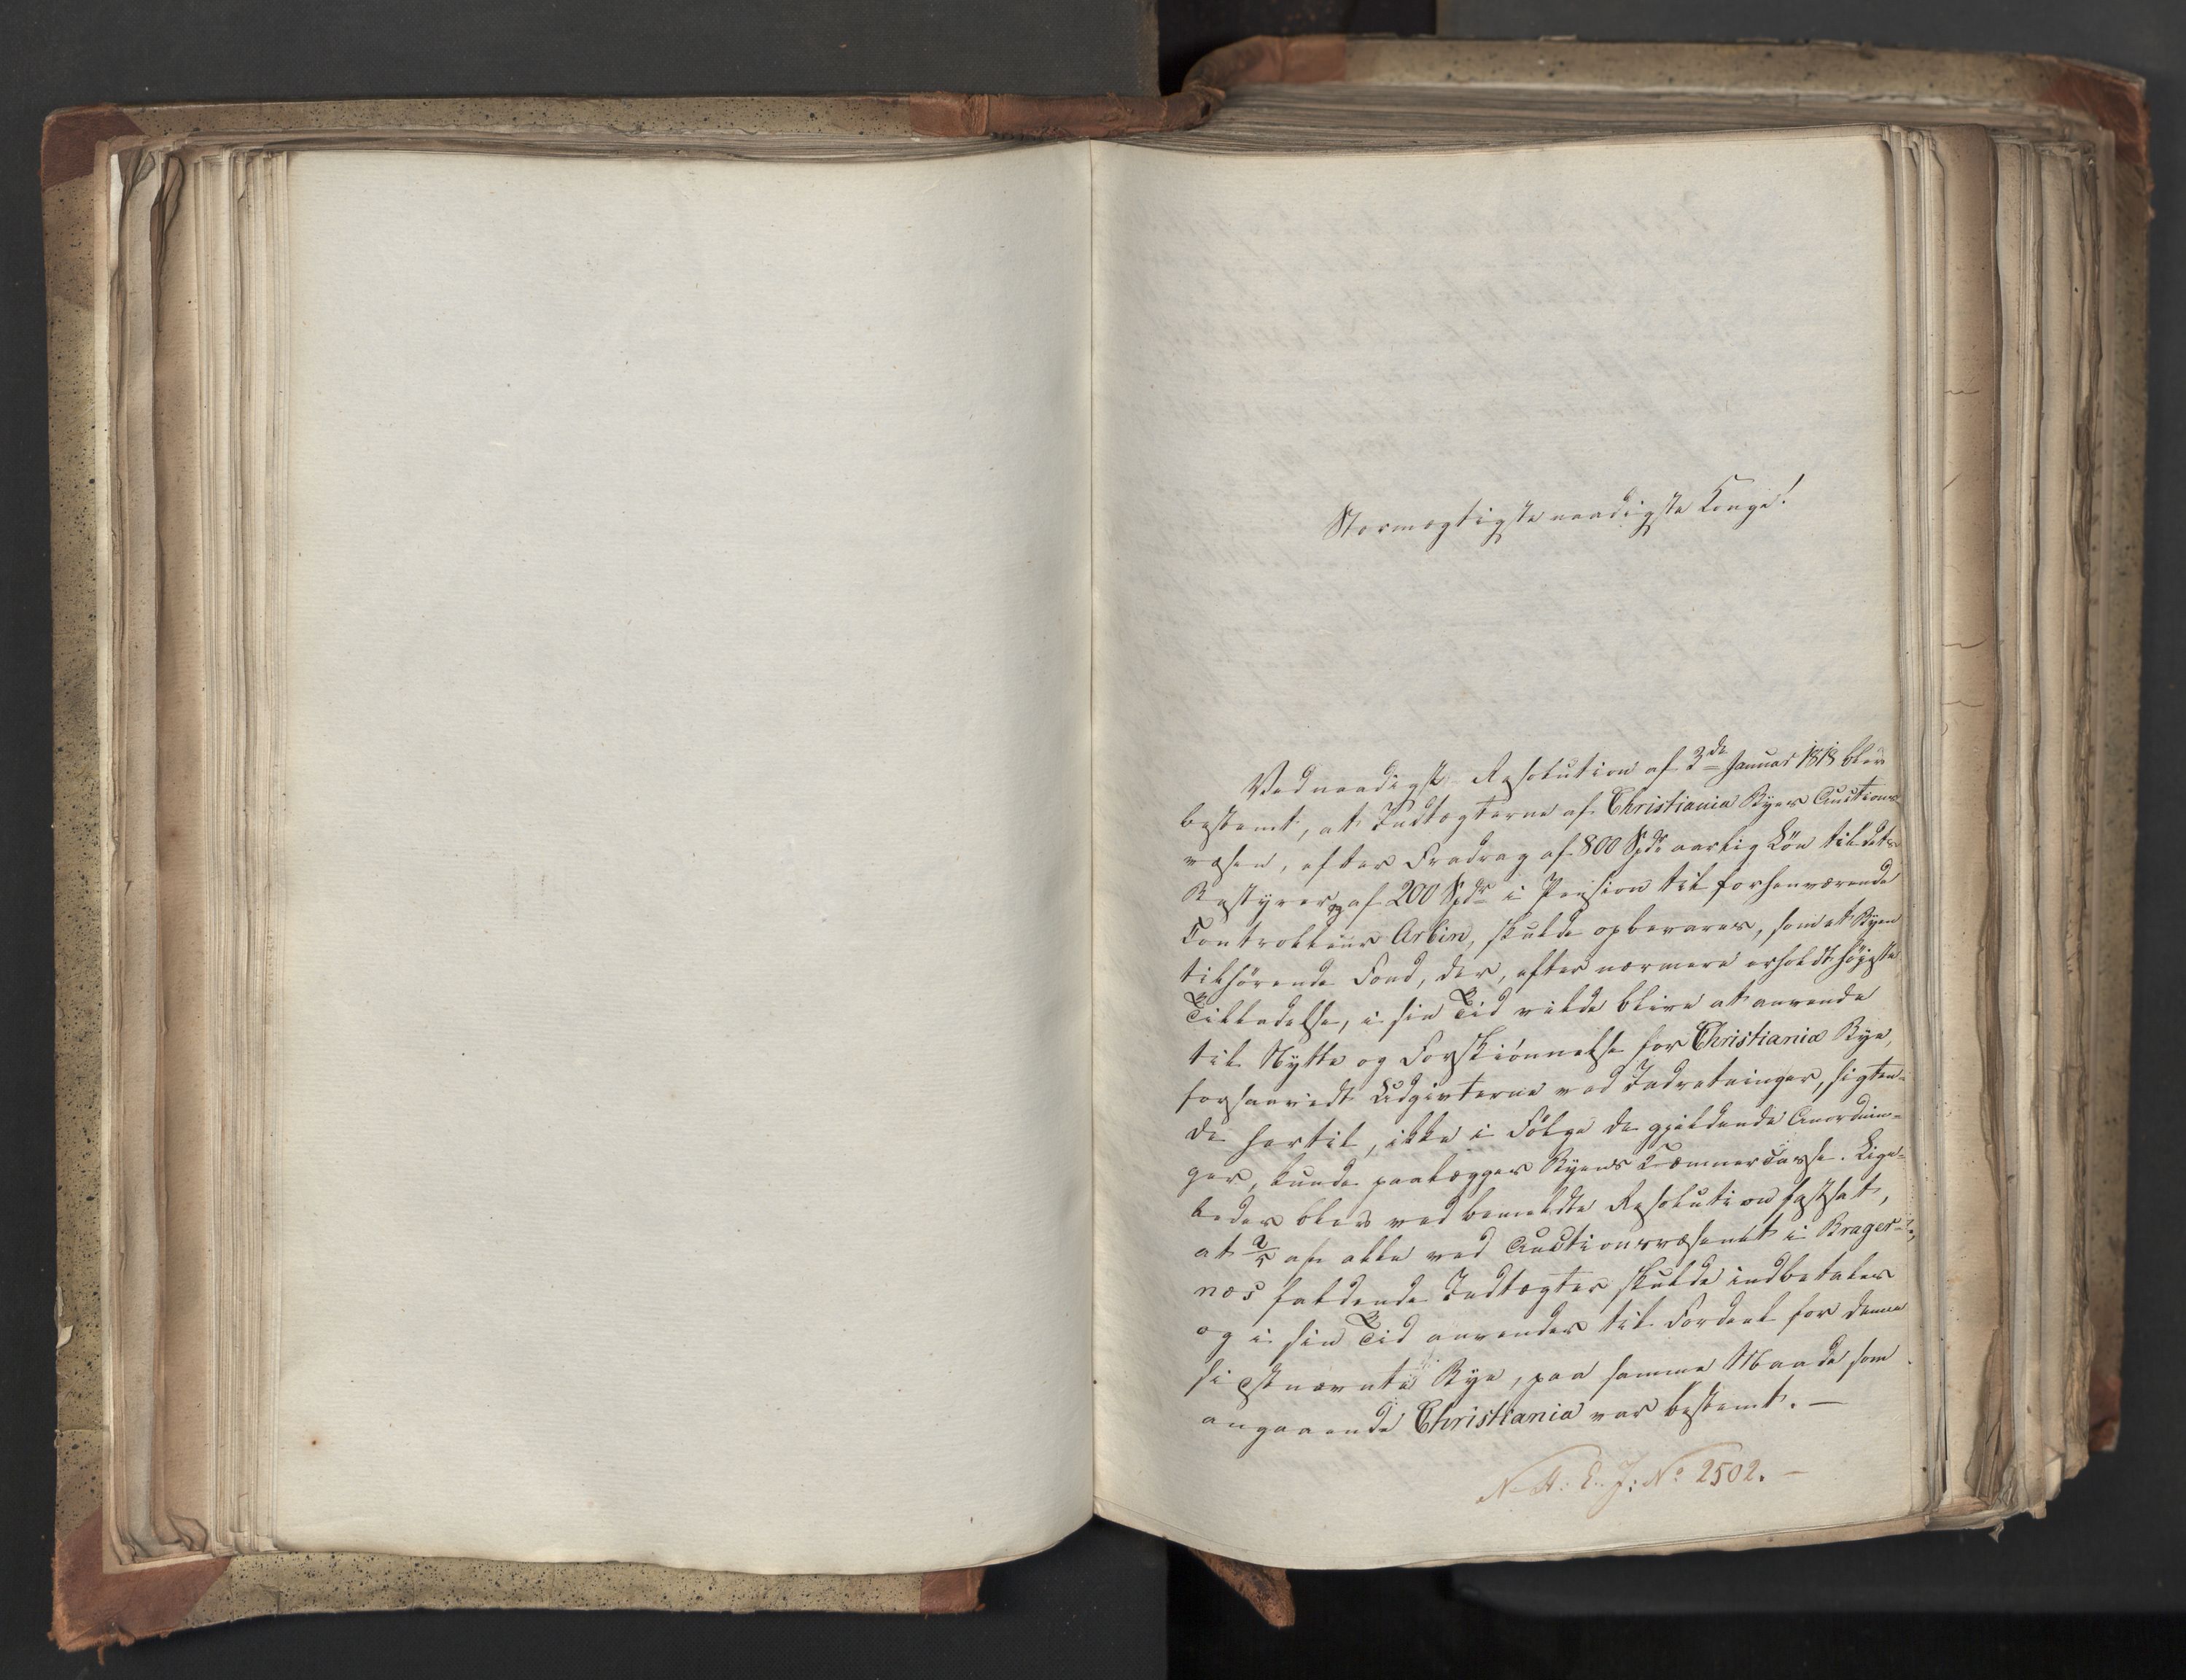 Stormægtigste naadigste Konge!
Ved naadigst Resolution af 3de Januar 1818 blev
bestemt, at Indtægterne af Christiania Byes Auctions-
væsen, efter Fradrag af 800 Spdr aarlig Lön til dets
Bestyrer og af 200 Spdr i Pension til forhenværende
Controlleur Arbin, skulde opbevares, som et Byen
tilhörende Fond, der, efter nærmere erholdt höieste
Tilladelse, i sin Tid vilde blive at anvende
til Nytte og Forskiönnelse for Christiania Bye,
forsaavidt Udgivterne ved Indretninger, sigten-
de hertil, ikke i Fölge de gjeldende Anordnin-
ger, kunde paalægges Byens Kæmnercasse. Lige-
ledes blev ved bemeldte Resolution fastsat,
at 2/5 af alle ved Auctionsvæsenet i Brager-
næs faldende Indtægter skulde indbetales
og i sin Tid anvendes til Fordeel for denne
sidstnævnte Bye, paa samme Maade som
angaaende Christiania var bestemt. —
N. H: E. J: No 2502. —